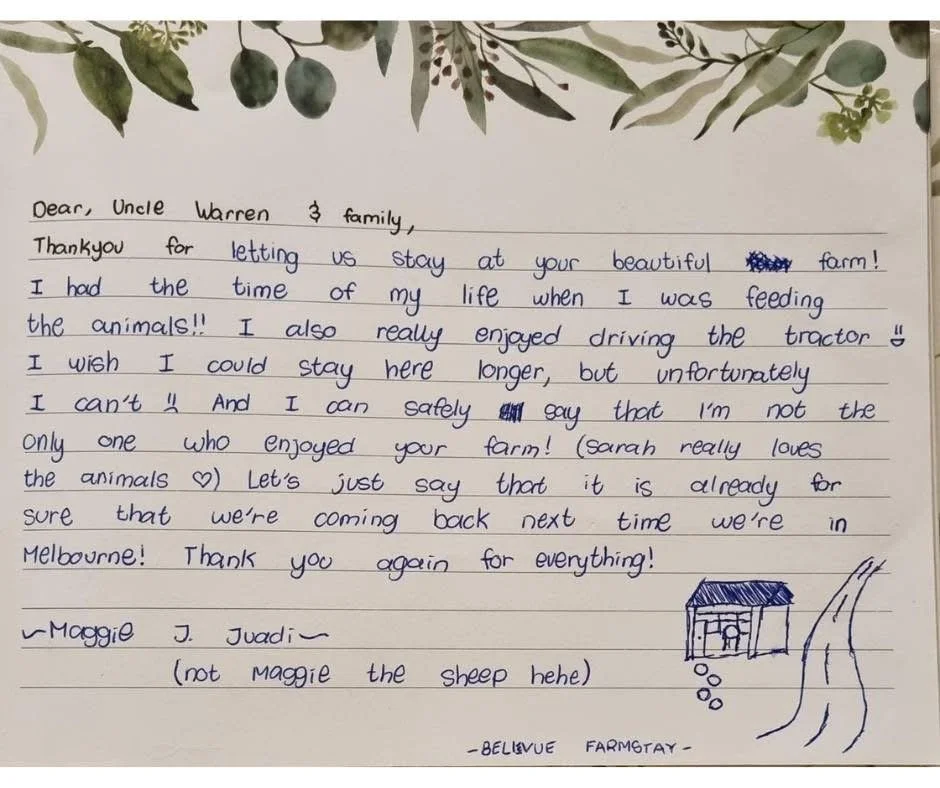 Dear, Uncle Warren & family,
Thankyou for letting us stay at your beautiful farm!
I had the time of my life when I was feeding
the animals!! I also really enjoyed driving the tractor
I wish I could stay here longer, but unfortunately
I can't !! And I can safely say that I'm not the
only one who enjoyed your farm! (Sarah really loves
the animals ♡) Let's just say that it is already for
sure that we're coming back next time we're in
Melbourne! Thank you again for everything!
~Maggie J. Juadi~
(not Maggie the sheep hehe)
-BELLEVUE FARMSTAY-